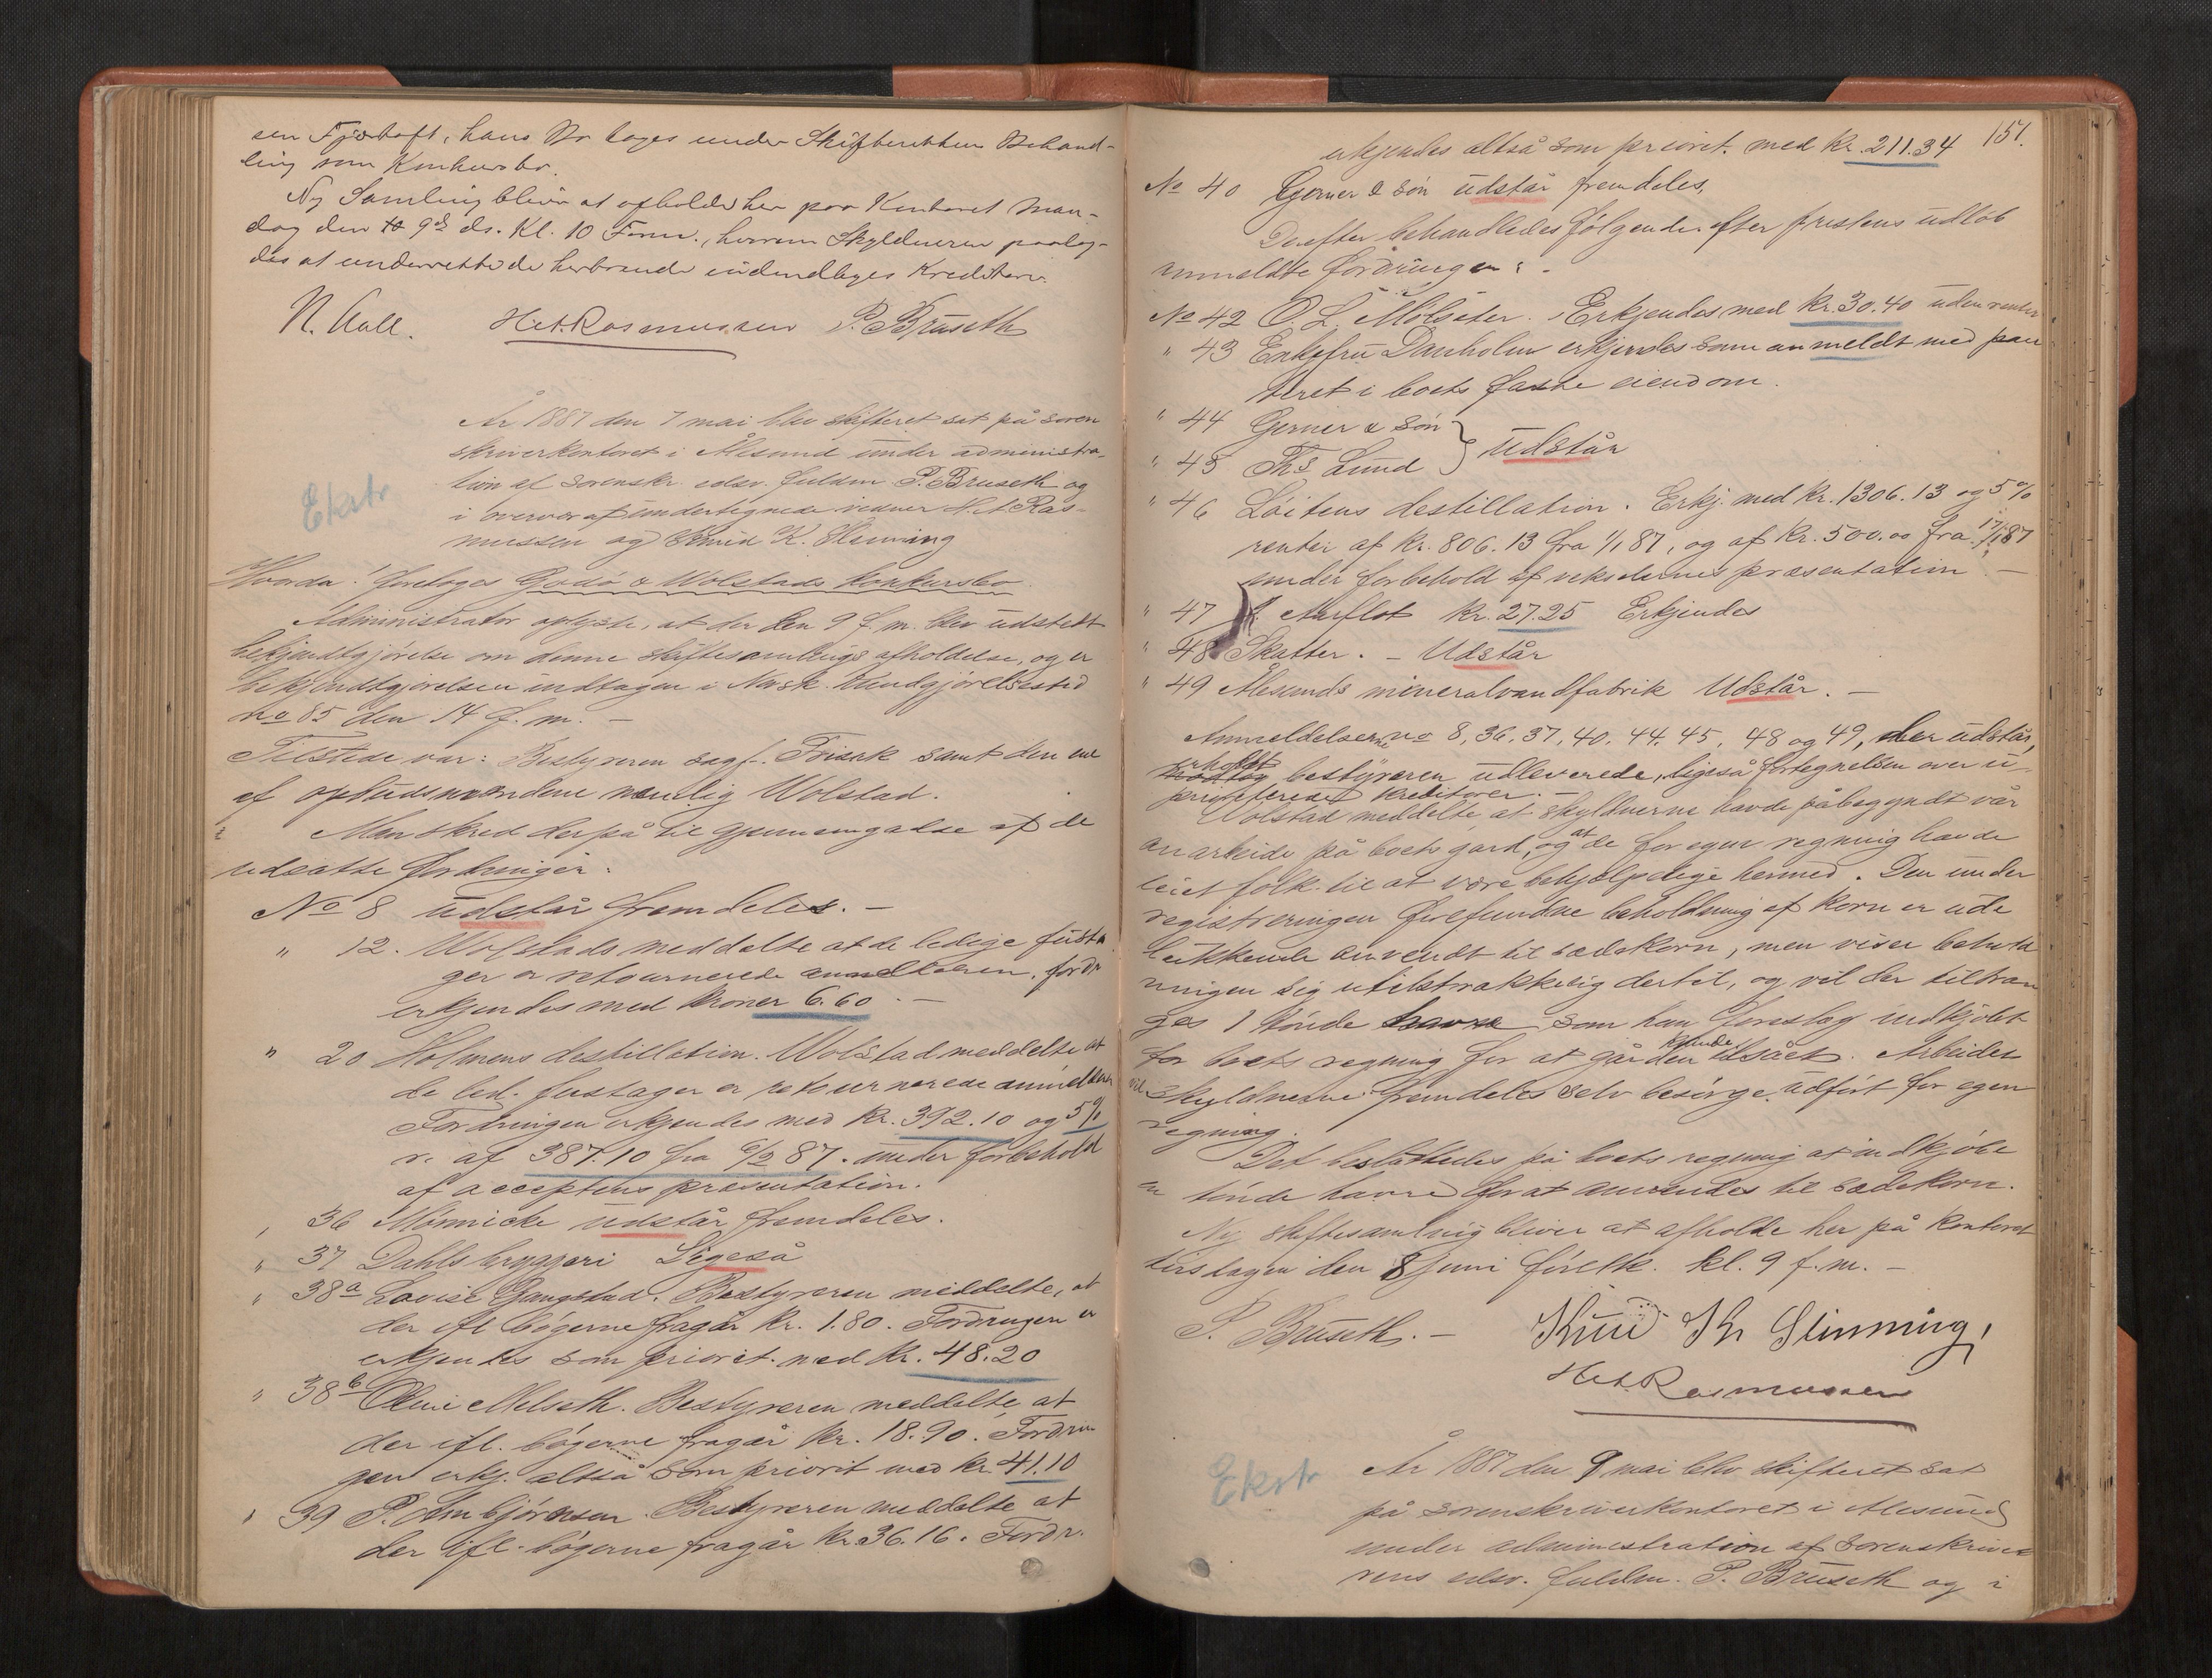 sen Fjørtoft, hans Bo toges under Skifterettens Behand-
ling som Konkursbo.
Ny Samling bliver at afholde her paa Kontoret Man-
dag den 9de ds. Kl. 10 Form., hvorom Skyldneren paalag-
des at underrette de herboende indenbyges Kreditorer.
N. Aall. H. A. Rasmussen P. Bruseth
År 1887 den 7 mai blev skifteret sat på soren
skriverkontoret i Ålesund under administra-
tion af sorenskr. edsv. fuldm P. Bruseth og
i overvær af undertegnede vidner H. A. Ras-
mussen og Knud K. Slinning
Ekstr
Hvorda: foretoges Godø & Wolstads konkursbo.
Administrator oplyste, at der den 9 f. m. blev udstedt
bekjendtgjørelse om denne skiftesamlings afholdelse, og er
bekjendtgjørelsen indtagen i Norsk Kundgjørelsestid
no 85 den 14 f. m. –
Tilstede var: Bestyreren sagf. Frisak samt den ene
af opbudsmændene nemlig Wolstad.
Man skred derpå til gjennemgåelse af de
udsatte fordringer:
No 8 udstår fremdeles. –
" 12. Wolstads meddelte at de ledige fusta
ger er retournerede anmelderen, fordr
erkjendes med kroner 6.60. –
" 20 Holmens destillation. Wolstad meddelte at
de led. fustager er retournerede anmelderen
Fordringen erkjendes med kr. 392.10 og 5%
r. af 387.10 fra 6/2 87. under forbehold
af acceptens præsentation.
" 36 Mönnicke udstår fremdeles.
" 37 Dahls bryggeri Ligeså
" 38a Lovise Gangstad. Bestyreren meddelte, at
der ifl bøgerne fragår kr. 1.80. Fordringen er
erkjendes som priorit. med kr. 48.20
" 38b Oline Melseth. Bestyreren meddelte, at
der ifl. bøgerne fragår kr. 18.90. Fordrin
gen erkj. altså som priorit med kr. 41.10
" 39 P. Vembjørnsen. Bestyreren meddelte at
der ifl. bøgerne fragår kr. 36.16. Fordr.
151.
erkjendes altså som priorit. med kr. 211.34
No 40 Gerner & søn udstår fremdeles.
Derefter behandledes følgende efter fristens udløb
anmeldte fordringer: –
No 42 O. L. Molsæter. Erkjendes med kr. 30.40 uden renter
" 43 Enkefru Danholm erkjendes som anmeldt med pan
teret i boets faste eiendom.
" 44 Gerner & søn } Udstår
" 45 Ths Lund
" 46 Löitens destillation. Erkj. med kr. 1306.13 og 5%
renter af kr. 806.13 fra 1/1 87, og af kr. 500.00 fra 17/1 87
under forbehold af vekslernes præsentation. –
" 47 Aarflot kr. 27.25 Erkjendes
" 48 Skatter. – Udstår
" 49 Ålesunds mineralvandfabrik Udstår. –
Anmeldelserne no 8, 36. 37, 40. 44. 45. 48 og 49, der udstår,
erholdt bestyreren udleverede, ligeså fortegnelsen over u-
prioriterede kreditorer. –
Wolstad meddelte, at skyldnerne havde påbegyndt vår
anarbeide på boets gard, og at de for egen regning havde
leiet folk til at være behjælpelige hermed. Den under
registreringen forefundne beholdning af korn er ude
lukkende anvendt til sædekorn, men viser behold
ningen sig utilstrækkelig dertil, og vil der tiltræn
ges 1 tønde havre som han foreslog indkjøbt
for boets regning for at gården kunde tilsåes. Arbeidet
vil skyldnerne fremdeles selv besørge udført for egen
regning.
Det besluttedes på boets regning at indkjøbe
en tønde havre for at anvendes til sædekorn.
Ny skiftesamling bliver at afholde her på kontoret
tirsdagen den 8 juni førstk. kl. 9 f. m. –
P. Bruseth. – Knud Kr Slinning,
H. A. Rasmussen
Ekstr
År 1887 den 9 mai blev skifteret sat
på sorenskriverkontoret i Ålesund
under administration af sorenskrive
rens edsv. fuldm. P. Bruseth og i